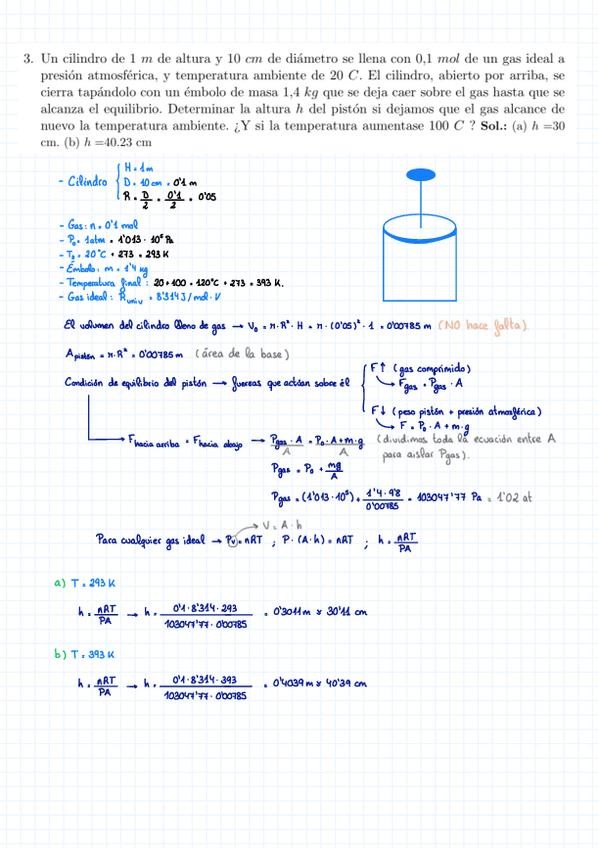 3. Un cilindro de 1 m de altura y 10 cm de diámetro se llena con 0,1 mol de un gas ideal a
presión atmosférica, y temperatura ambiente de 20 C. El cilindro, abierto por arriba, se
cierra tapándolo con un émbolo de masa 1,4 kg que se deja caer sobre el gas hasta que se
alcanza el equilibrio. Determinar la altura h del pistón si dejamos que el gas alcance de
nuevo la temperatura ambiente. ¿Y si la temperatura aumentase 100 C ? Sol.: (a) h =30
cm. (b) h =40.23 cm
- Cilindro { H = 1m
D = 10 cm = 0'1 m
R = D/2 = 0'1/2 = 0'05
- Gas: n = 0'1 mol
- P₀ = 1atm = 1'013 · 10⁵ Pa
- T₀ = 20°C + 273 = 293 K
- Émbolo: m = 1'4 kg
- Temperatura final: 20+100 = 120°C + 273 = 393 K.
- Gas ideal: R univ = 8'314 J/mol·K
El volumen del cilindro lleno de gas → V₀ = π·R²·H = π·(0'05)²·1 = 0'00785 m (NO hace falta).
A pistón = π·R² = 0'00785 m (área de la base)
Condición de equilibrio del pistón → fuerzas que actúan sobre él { F↑ (gas comprimido)
→ Fgas = Pgas · A
F↓ (peso pistón + presión atmosférica)
→ F = P₀ · A + m·g
→ F hacia arriba = F hacia abajo → Pgas · A / A = P₀ · A + m·g / A (dividimos toda la ecuación entre A
para aislar Pgas).
Pgas = P₀ + mg/A
Pgas = (1'013 · 10⁵) + 1'4 · 9'8 / 0'00785 = 103047'77 Pa = 1'02 at
→ V = A · h
Para cualquier gas ideal → PV = nRT ; P·(A·h) = nRT ; h = nRT/PA
a) T = 293 K
h = nRT/PA → h = 0'1 · 8'314 · 293 / 103047'77 · 0'00785 = 0'3011m ≈ 30'11 cm
b) T = 393 K
h = nRT/PA → h = 0'1 · 8'314 · 393 / 103047'77 · 0'00785 = 0'4039m ≈ 40'39 cm